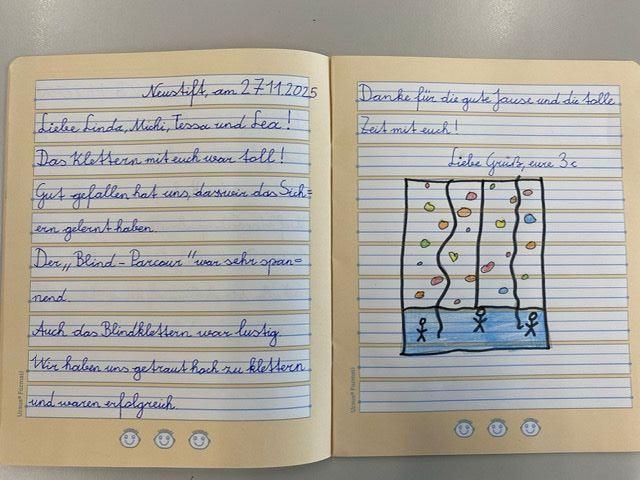 Neustift, am 27.11.2025
Liebe Linda, Michi, Tessa und Lea!
Das Klettern mit euch war toll!
Gut gefallen hat uns, dass wir das Sich=
ern gelernt haben.
Der „Blind-Parcour" war sehr span=
nend.
Auch das Blindklettern war lustig.
Wir haben uns getraut hoch zu klettern
und waren erfolgreich.
Ursus® Formati
Danke für die gute Jause und die tolle
Zeit mit euch!
Liebe Grüß, eure 3c
Ursus® Formati